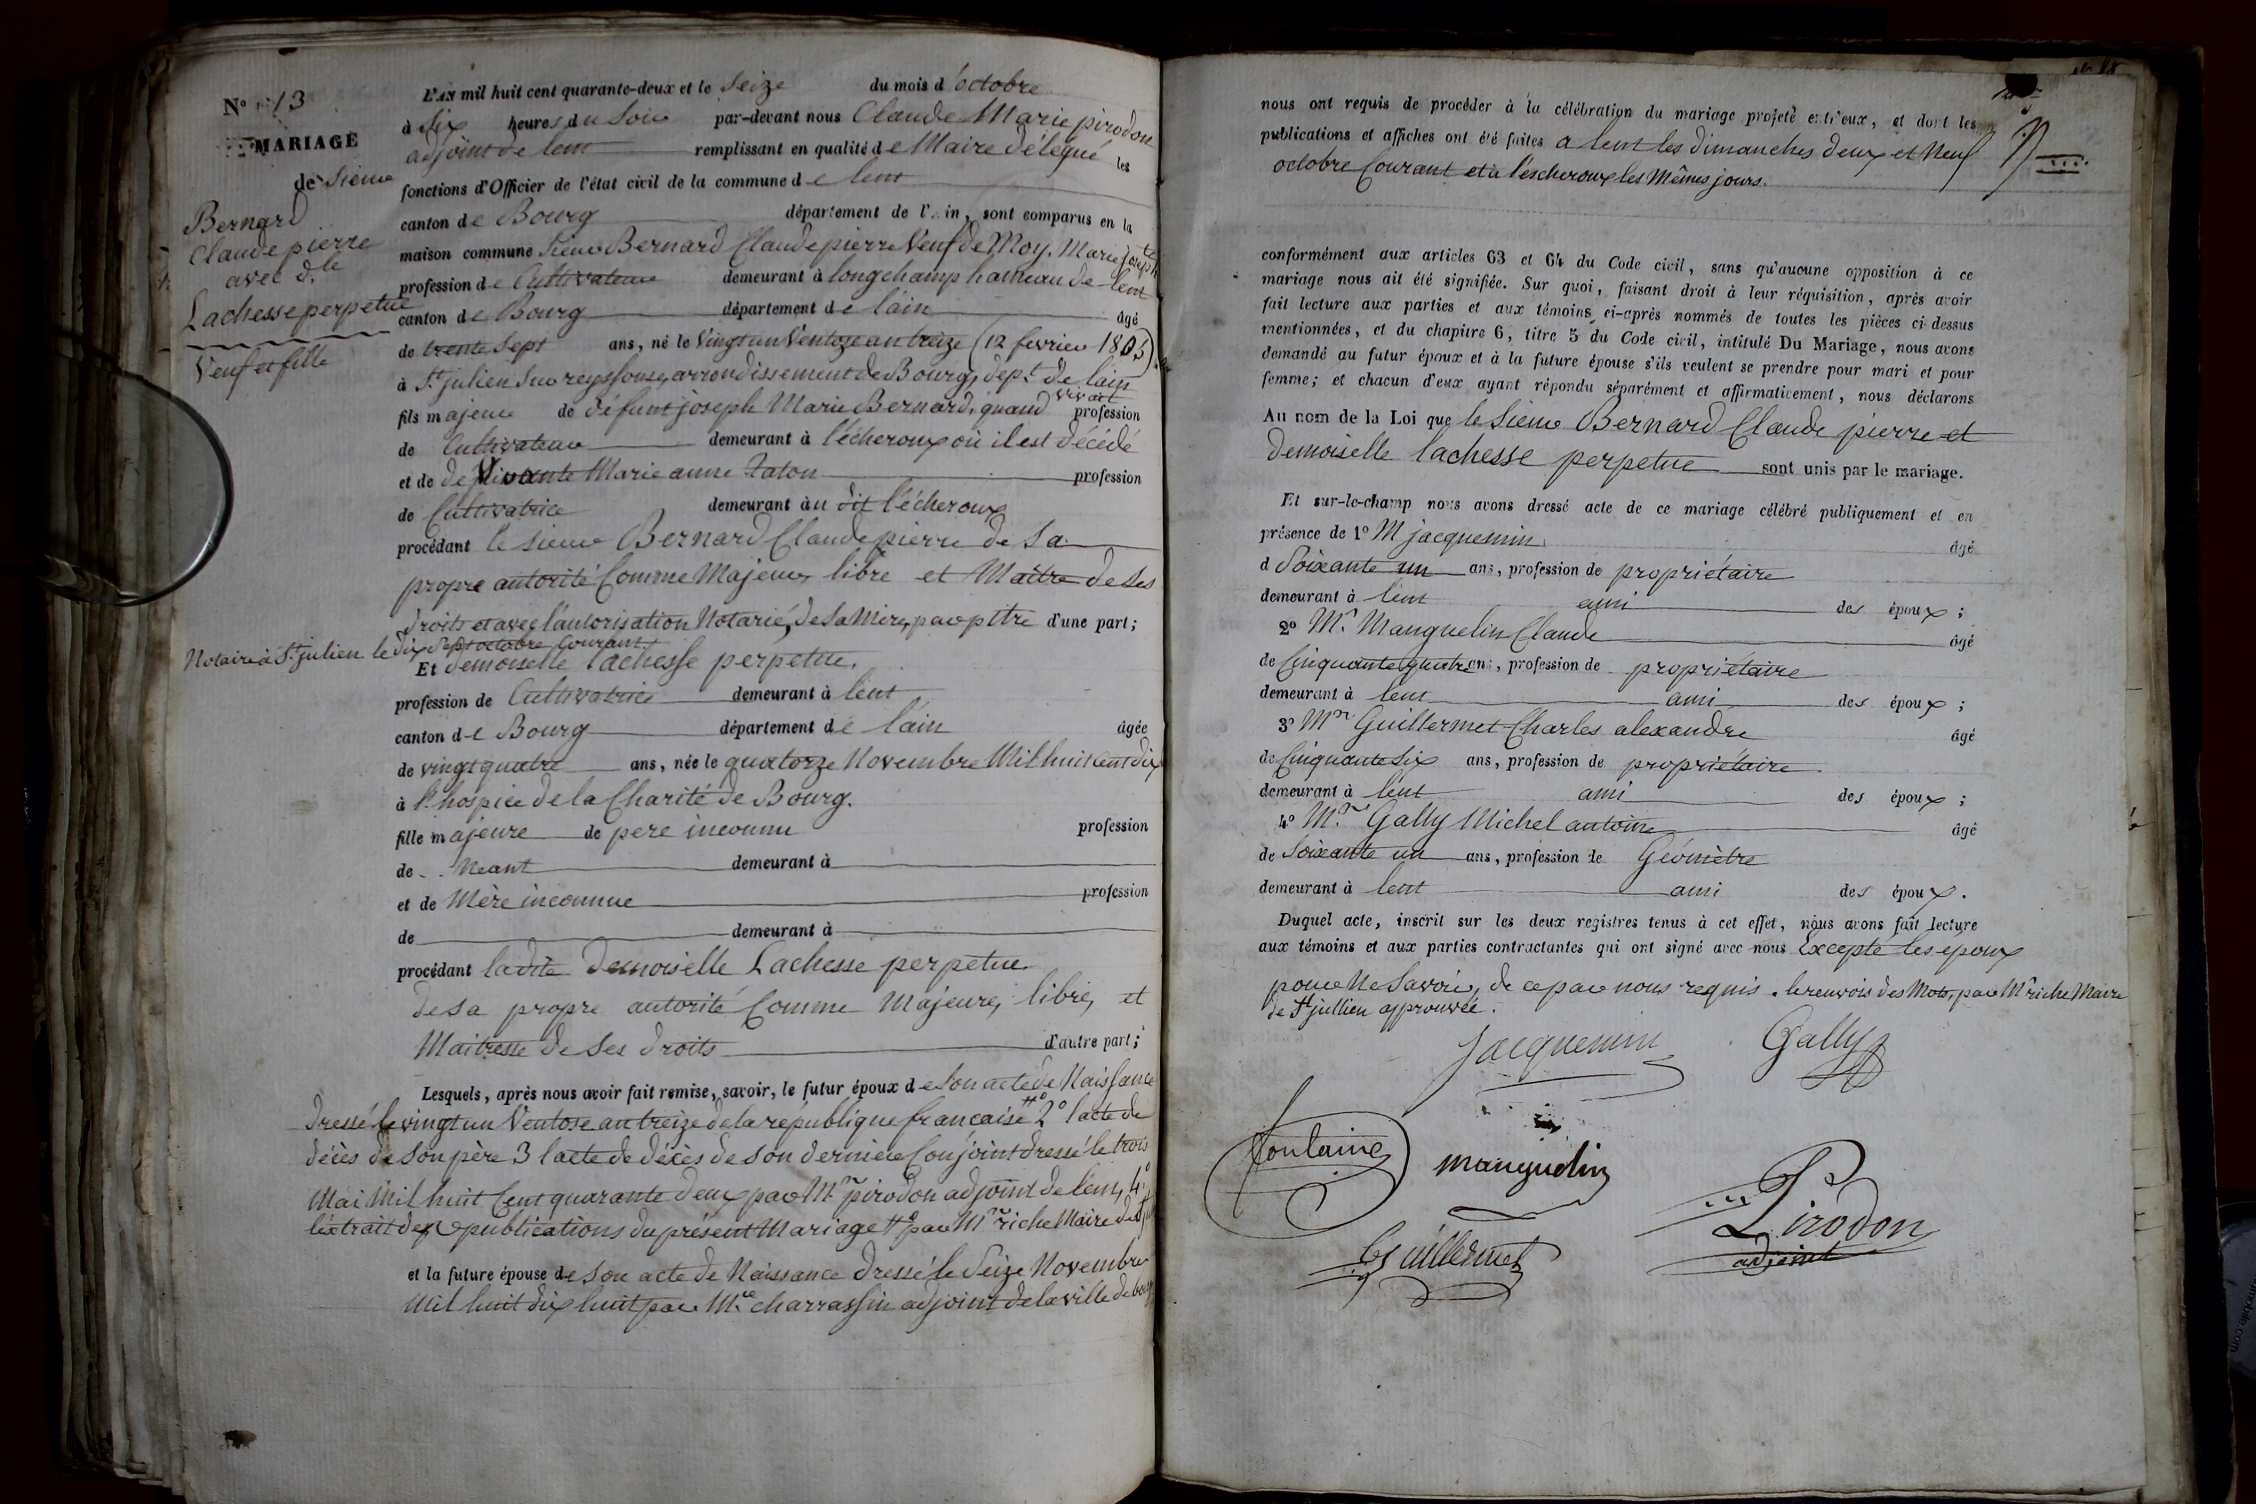 N° 13
MARIAGE
de Sieur
Bernard
Claude pierre
avec d.lle
Lachesse perpetue
Veuf et fille
L'AN mil huit cent quarante-deux et le Seize du mois d'octobre
à Six heures du Soir par-devant nous Claude Marie pirodon
adjoint de lent remplissant en qualité de Maire délégué les
fonctions d'Officier de l'état civil de la commune de lent
canton de Bourg département de l'Ain, sont comparus en la
maison commune Sieur Bernard Claude pierre Veuf de Moy. Marie josephte
profession de Cultivateur demeurant à longchamp hameau de lent
canton de Bourg département de lain âgé
de trente Sept ans, né le Vingt un Ventoze an treize (12 fevrier 1805)
à St julien Sur reyssouse, arrondissement de Bourg, dépt. de lain
fils majeur de défunt joseph Marie Bernard, quand vivait profession
de Cultivateur demeurant à l'écheroux où il est décédé
et de de Vivante Marie anne Zaton profession
de Cultivatrice demeurant au dit l'écheroux
procédant le sieur Bernard Claude pierre de Sa
propre autorité Comme Majeur, libre et Maître de Ses
droits et avec l'autorisation Notarié, de Sa Mère, par pître d'une part;
Notaire à St julien le dix Sept octobre Courant
Et demoiselle lachesse perpetue.
profession de Cultivatrice demeurant à lent
canton de Bourg département de lain âgée
de vingt quatre ans, née le quatorze Novembre Mil huit Cent dix
à l'hospice de la Charité de Bourg.
fille majeure de pere inconnu profession
de Neant demeurant à
et de Mère inconnue profession
de demeurant à
procédant ladite Demoiselle Lachesse perpetue
de sa propre autorité Comme Majeure, libre, et
Maitresse de Ses droits d'autre part;
Lesquels, après nous avoir fait remise, savoir, le futur époux de Son acte de Naissance
dressé le vingt un Ventose an treize de la république française 2° l'acte de
décès de Son père 3 l'acte de décès de Son dernier Conjoint dressé le trois
Mai Mil huit Cent quarante deux par Mr pirodon adjoint de lent, 4°
l'extrait des publications du présent Mariage # par Mr riche Maire de St jul
et la future épouse de Son acte de Naissance dressé le Seize Novembre
Mil huit dix huit par Mr charrassin adjoint de la ville de bourg
nous ont requis de procéder à la célébration du mariage projeté entr'eux, et dont les
publications et affiches ont été faites a lent les dimanches deux et Neuf
octobre Courant et à l'escheroux les Mêmes jours.
conformément aux articles 63 et 64 du Code civil, sans qu'aucune opposition à ce
mariage nous ait été signifiée. Sur quoi, faisant droit à leur réquisition, après avoir
fait lecture aux parties et aux témoins ci-après nommés de toutes les pièces ci-dessus
mentionnées, et du chapitre 6, titre 5 du Code civil, intitulé Du Mariage, nous avons
demandé au futur époux et à la future épouse s'ils veulent se prendre pour mari et pour
femme; et chacun d'eux ayant répondu séparément et affirmativement, nous déclarons
Au nom de la Loi que le Sieur Bernard Claude pierre et
Demoiselle lachesse perpetue sont unis par le mariage.
Et sur-le-champ nous avons dressé acte de ce mariage célébré publiquement et en
présence de 1° M jacquemin âgé
d Soixante un ans, profession de propriétaire
demeurant à lent ami des époux;
2° Mr. Manguelin Claude âgé
de Cinquante quatre ans, profession de propriétaire
demeurant à lent ami des époux;
3° Mr Guillermet Charles alexandre âgé
de Cinquante Six ans, profession de propriétaire
demeurant à lent ami des époux;
4° Mr. Gally Michel antoine âgé
de Soixante un ans, profession de Géomètre
demeurant à lent ami des époux.
Duquel acte, inscrit sur les deux registres tenus à cet effet, nous avons fait lecture
aux témoins et aux parties contractantes qui ont signé avec nous Excepté les époux
pour Ne Savoir, de ce par nous requis. le renvois des Mots, par Mr riche Maire
de St jullien approuvée.
Jacquemin Gally
fontaine manguelin
Pirodon
adjoint
Guillermet